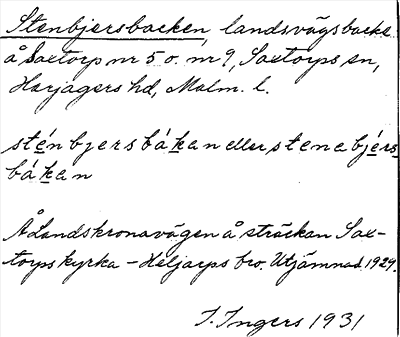 Stenbjersbacken, landsvägsbacke
å Saxtorp nr 5 o. nr 9, Saxtorps sn,
Harjagers hd, Malm. l.
sténbjersbákan eller stenabjérs-
bákan
Å Landskronavägen å sträckan Sax-
torps kyrka – Heljarps bro. Utjämnad 1929.
I. Ingers 1931